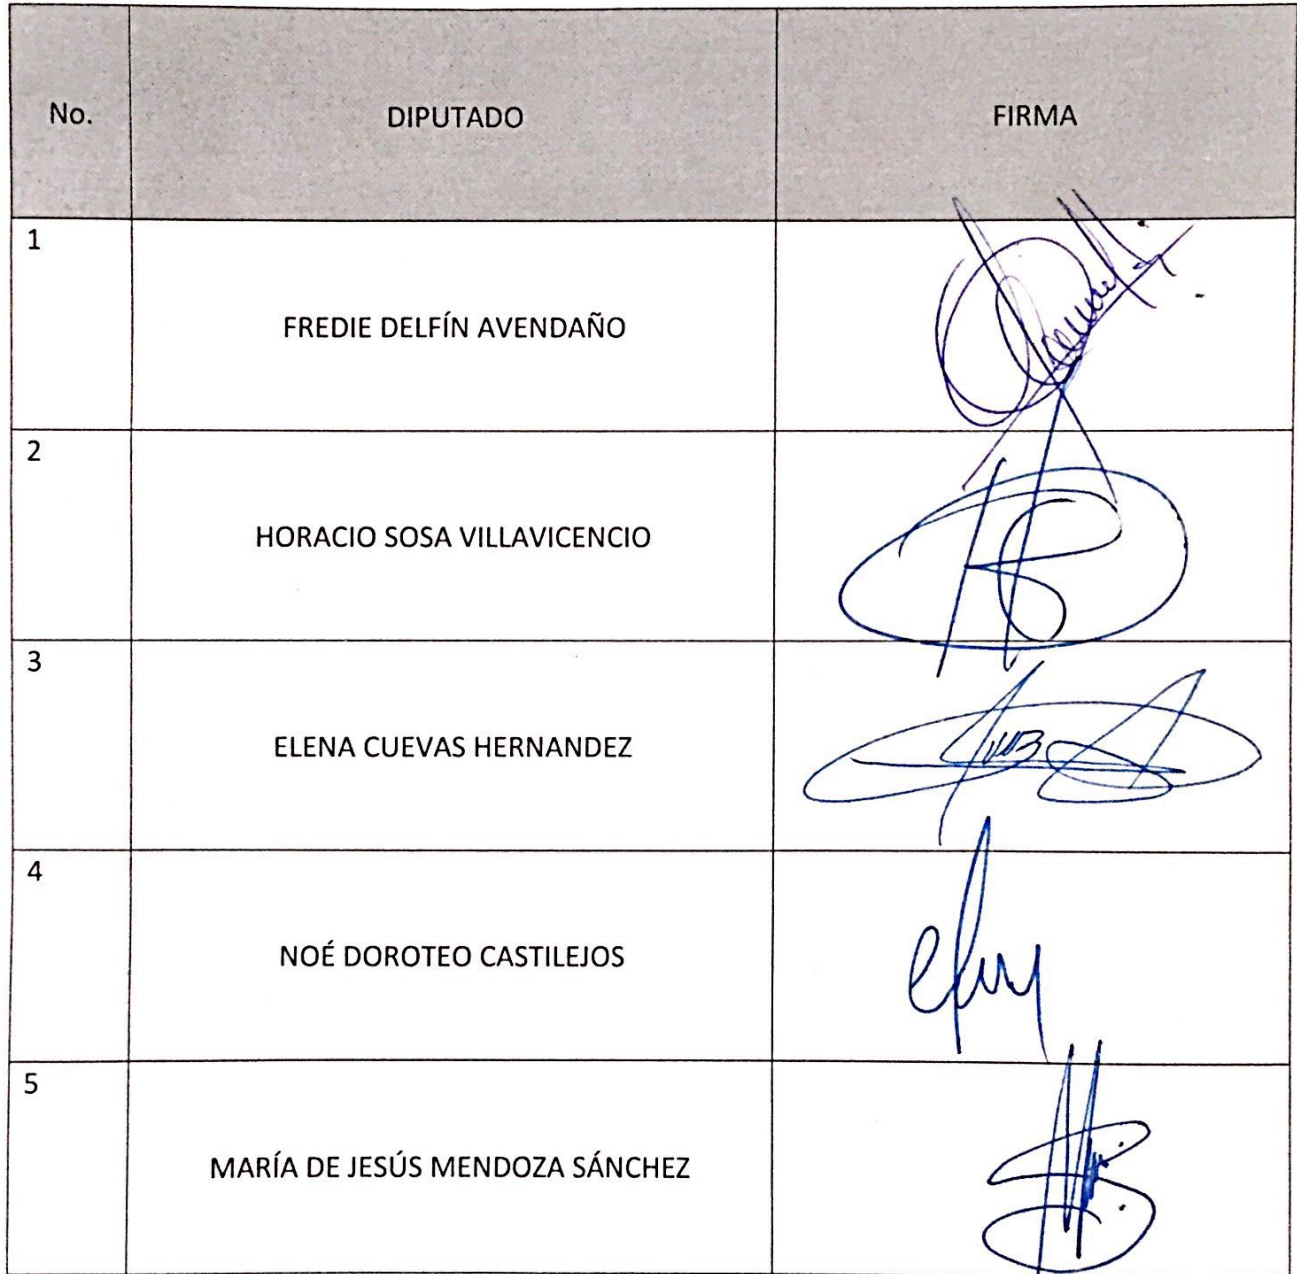 No. DIPUTADO FIRMA
1
FREDIE DELFÍN AVENDAÑO
2
HORACIO SOSA VILLAVICENCIO
3
ELENA CUEVAS HERNANDEZ
4
NOÉ DOROTEO CASTILEJOS
5
MARÍA DE JESÚS MENDOZA SÁNCHEZ